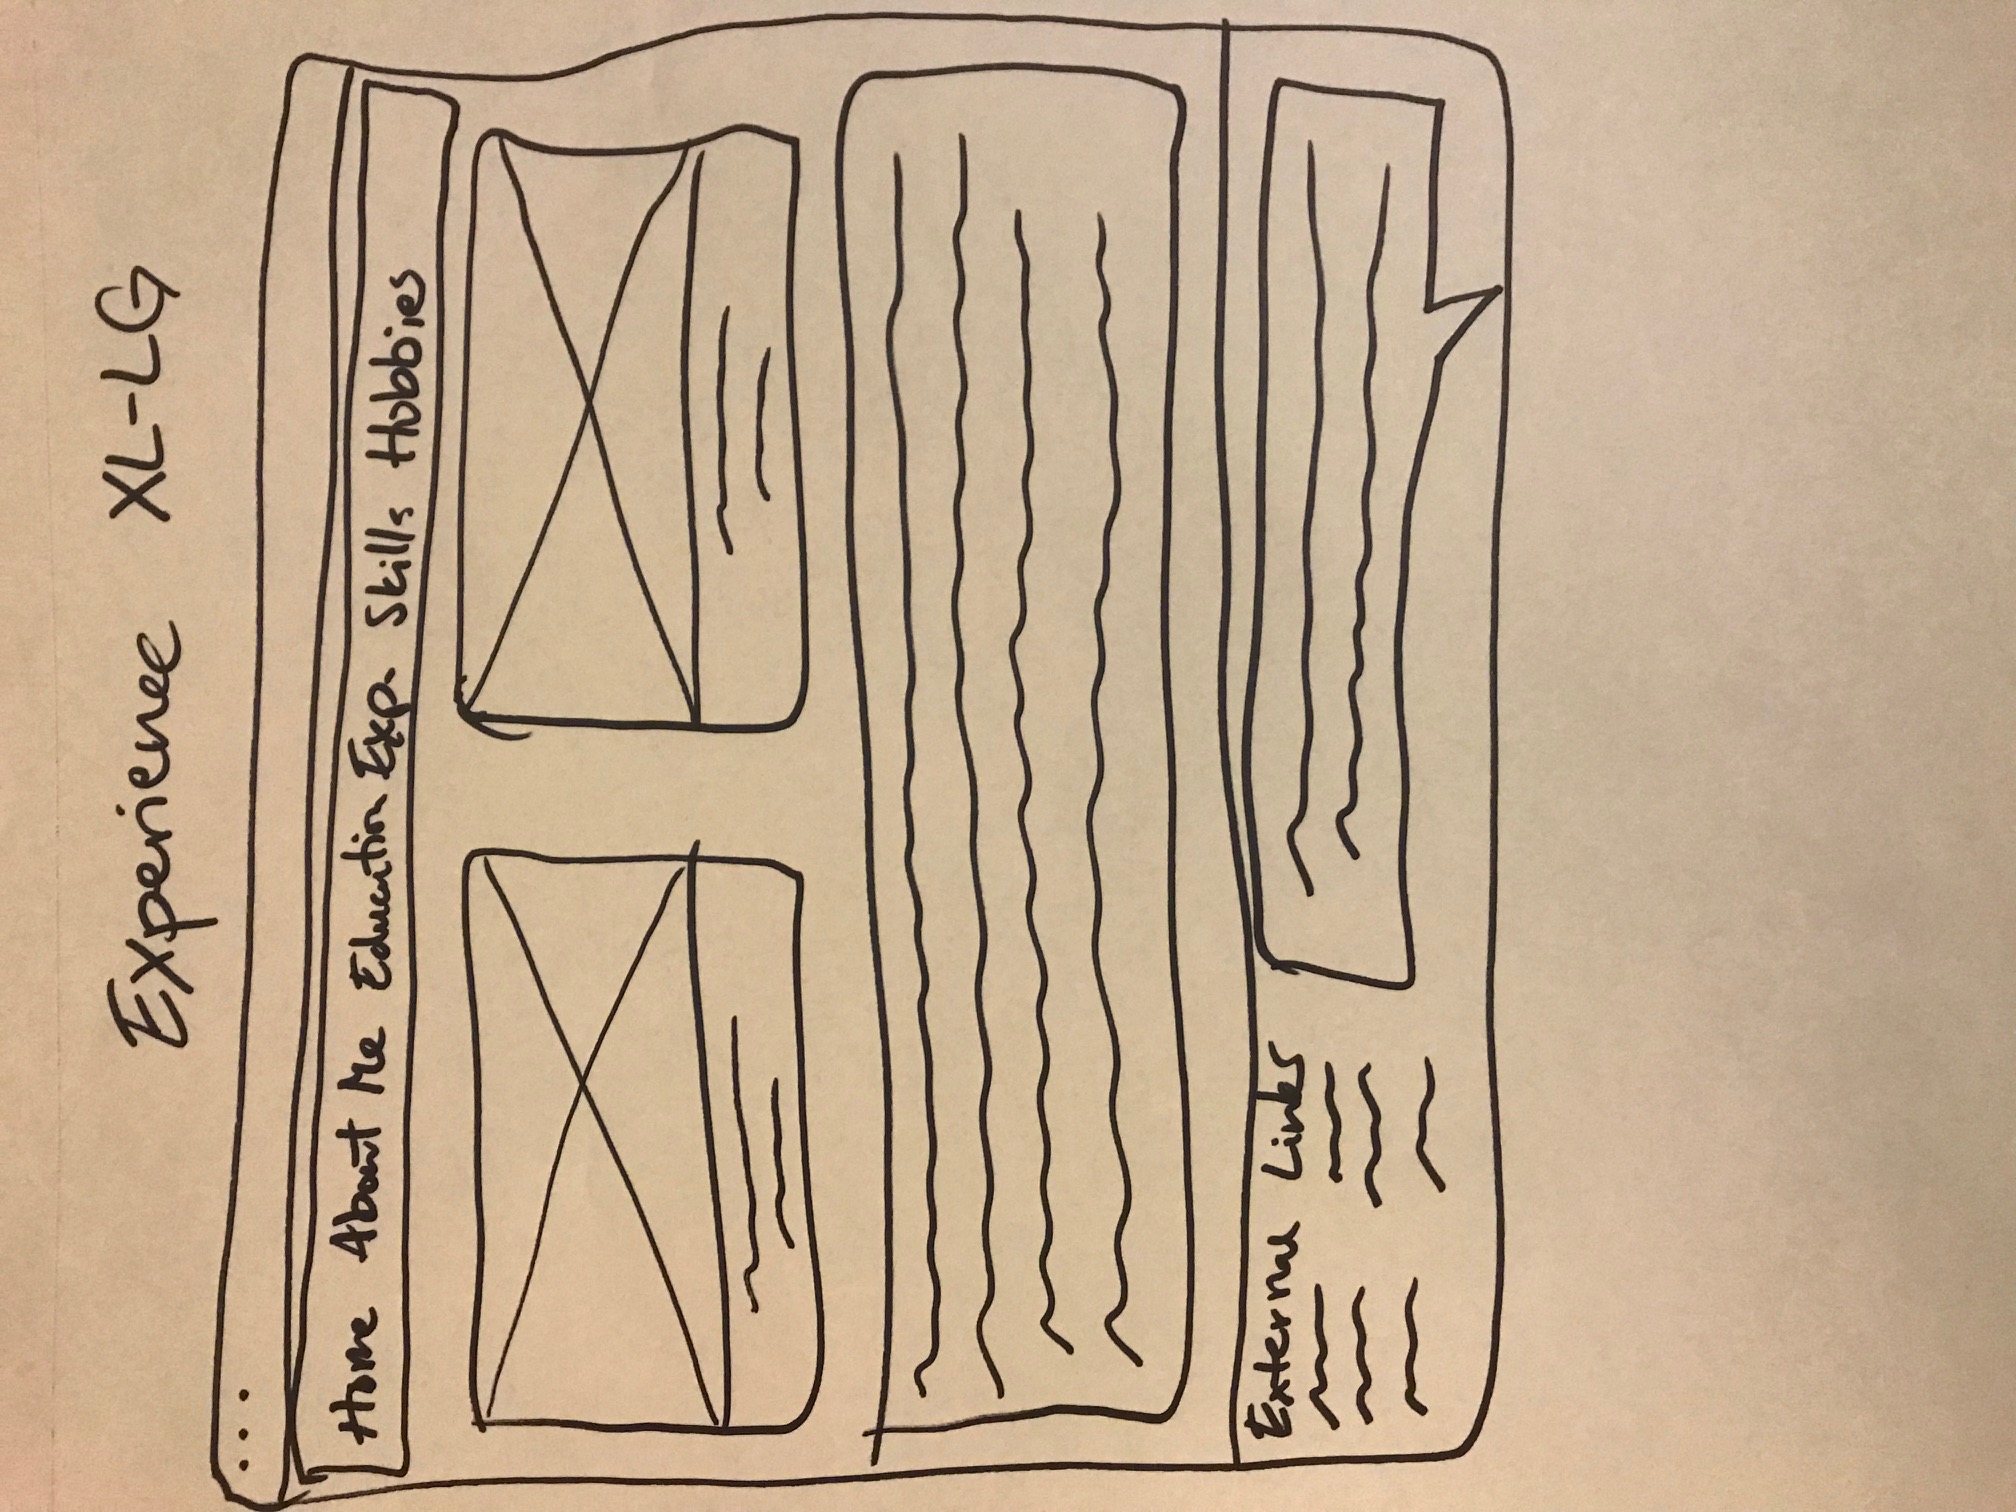 Experience XL-LG
Home About Me Education Exp. Skills Hobbies
External Links